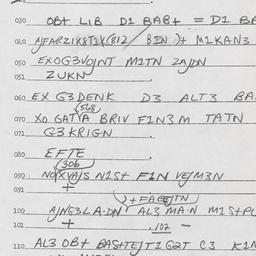 030 OB+ LIB D1 BAB+ = D1 BE
060 AJFARZIX8TIX(812 / BEN )+ M1KAN3
050 EXOG3VOJNT M1TN ZAJDN
051 ZUKN
060 EX G3DENK D3 ALT3 BA
(568)
070 XO GATYA BRIV F1N3M TATN
071 G3KRIGN
080 EFTE
(306)
090 NOXVAJS N1S+ F1N VEJM3N
091 +
2+FABEJTN
100 AJNG3LA·DN AL3 MA·N M1S+PL
101 + .102 -
110 AL3 OB+ BASHTEJT1G2T C3 K1N